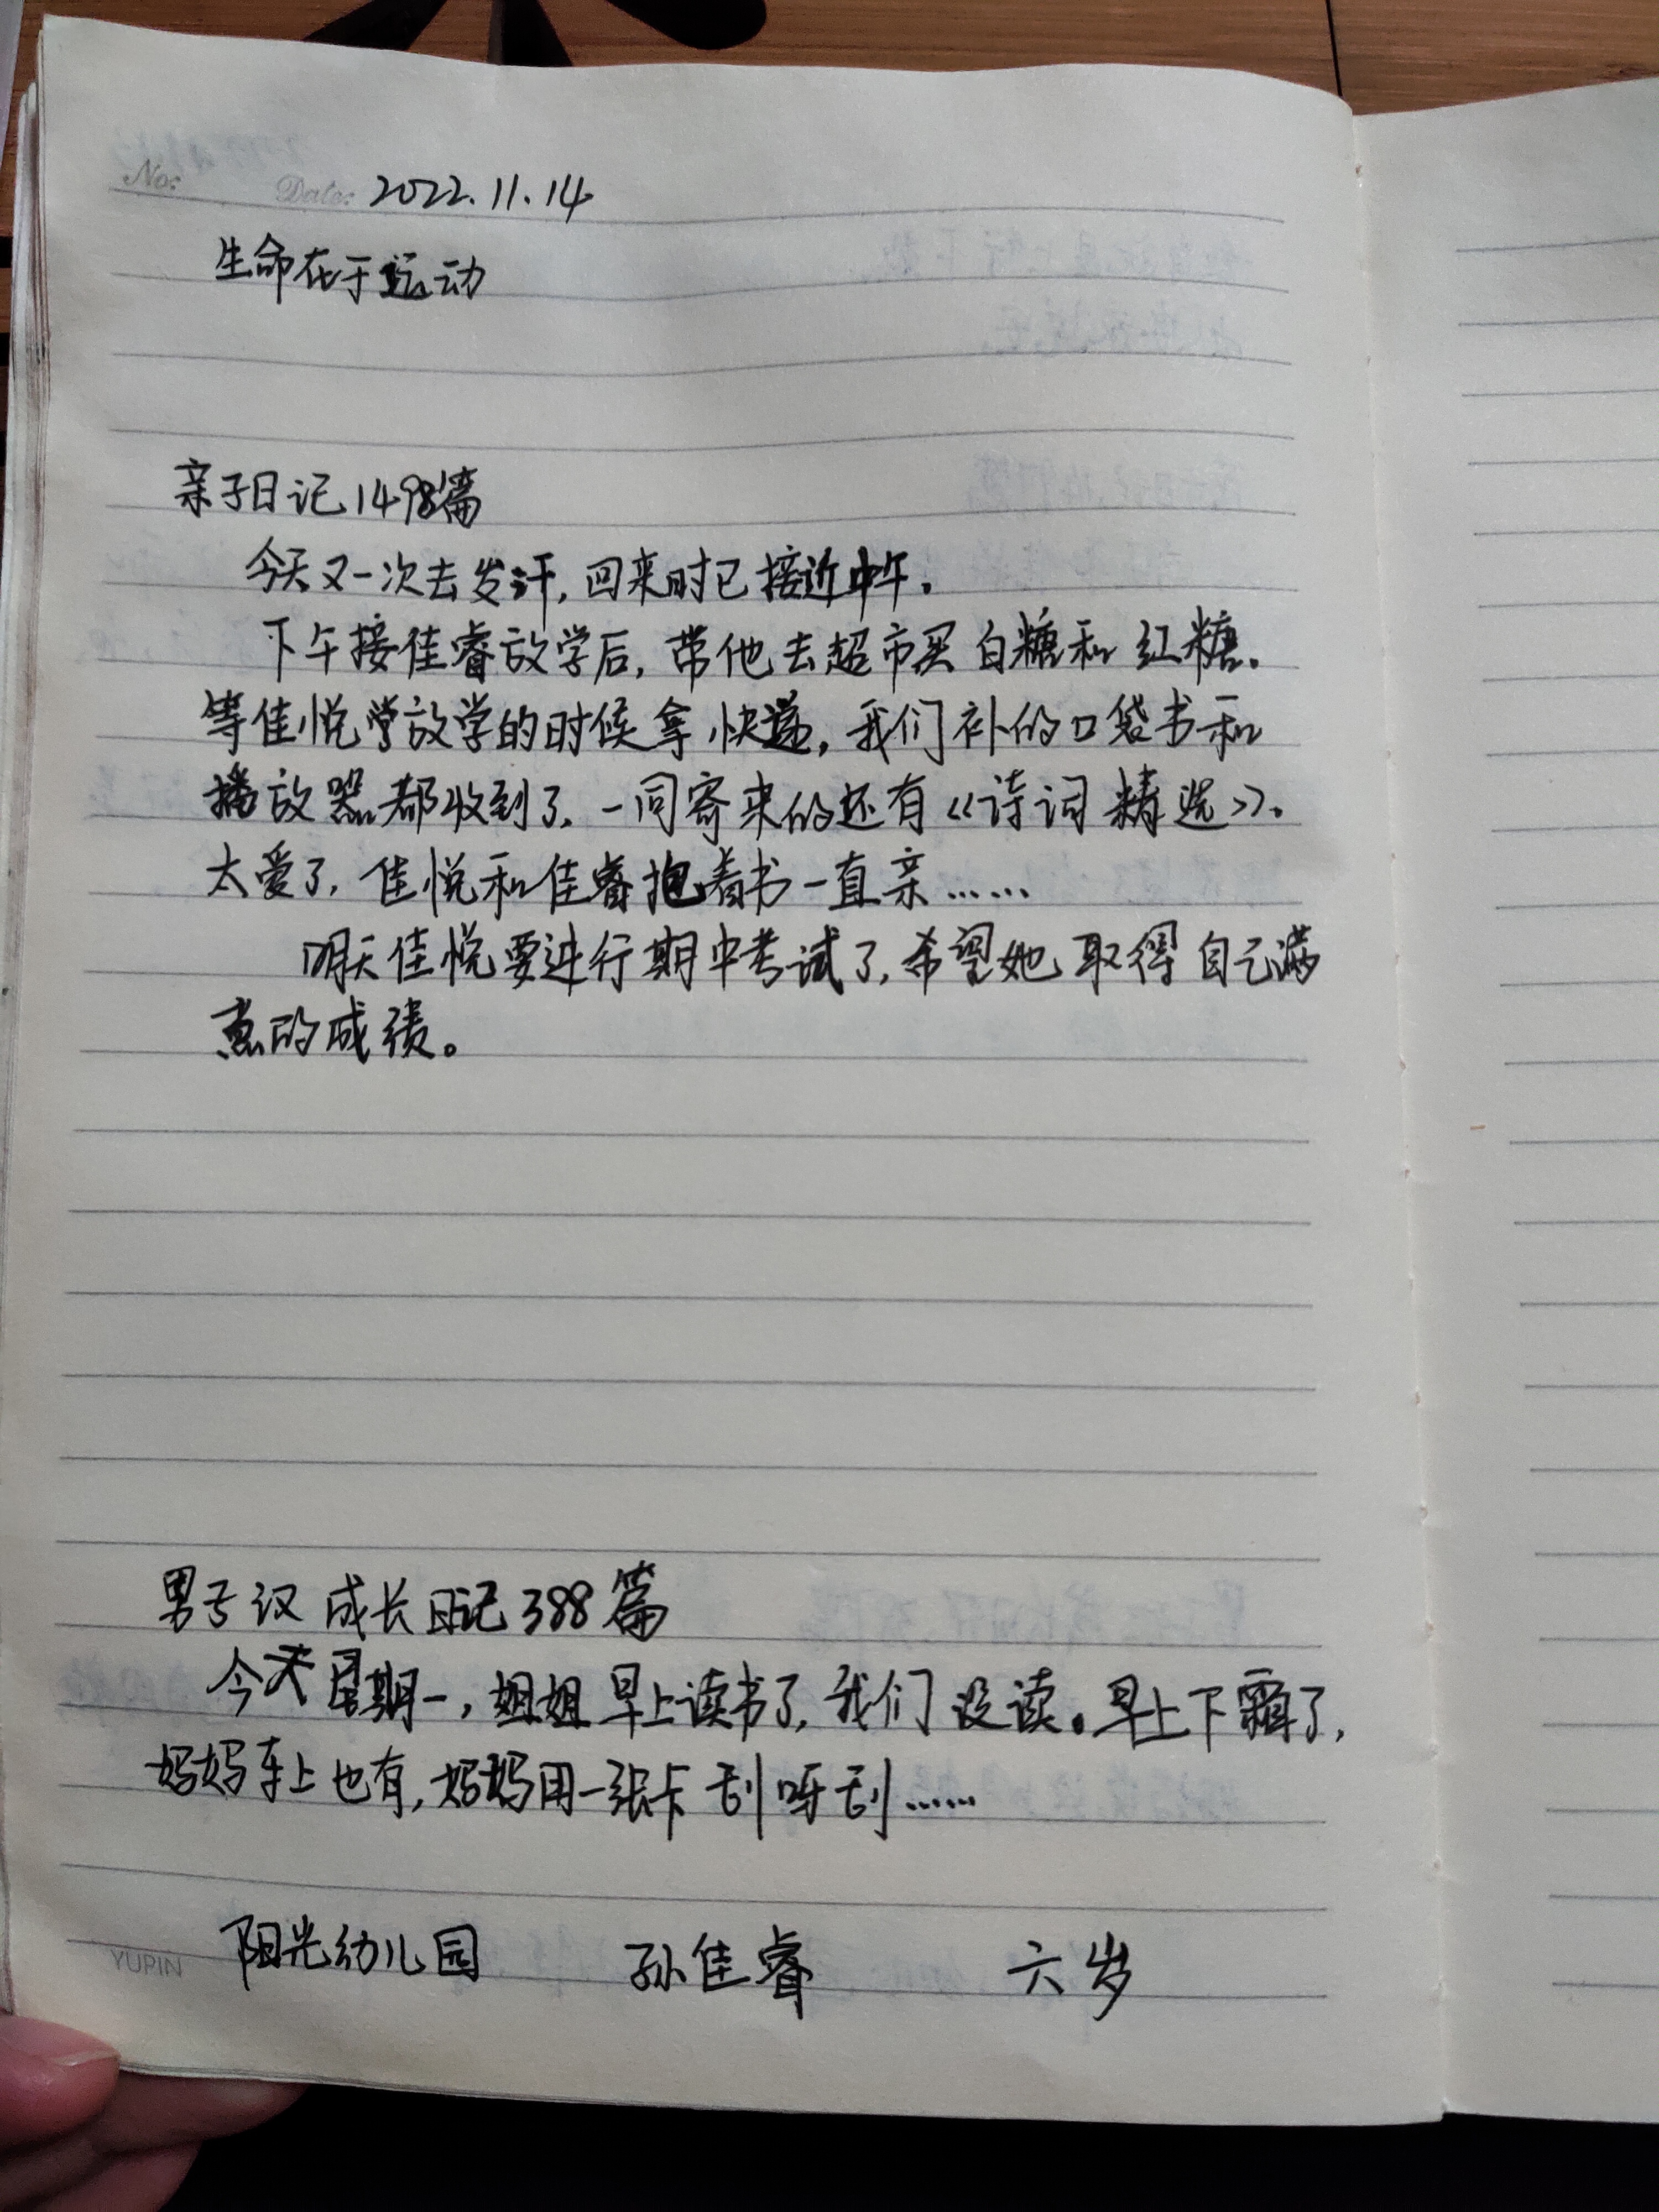 No:
Date: 2022.11.14
生命在于运动
亲子日记1498篇
今天又一次去发汗,回来时已接近中午。
下午接佳睿放学后,带他去超市买白糖和红糖。
等佳悦放学的时候拿快递,我们补的口袋书和
播放器都收到了,一同寄来的还有《诗词精选》。
太爱了,佳悦和佳睿抱着书一直亲……
明天佳悦要进行期中考试了,希望她取得自己满
意的成绩。
男子汉成长日记388篇
今天星期一,姐姐早上读书了,我们没读。早上下霜了,
妈妈车上也有,妈妈用一张卡刮呀刮……
阳光幼儿园 孙佳睿 六岁
YUPIN